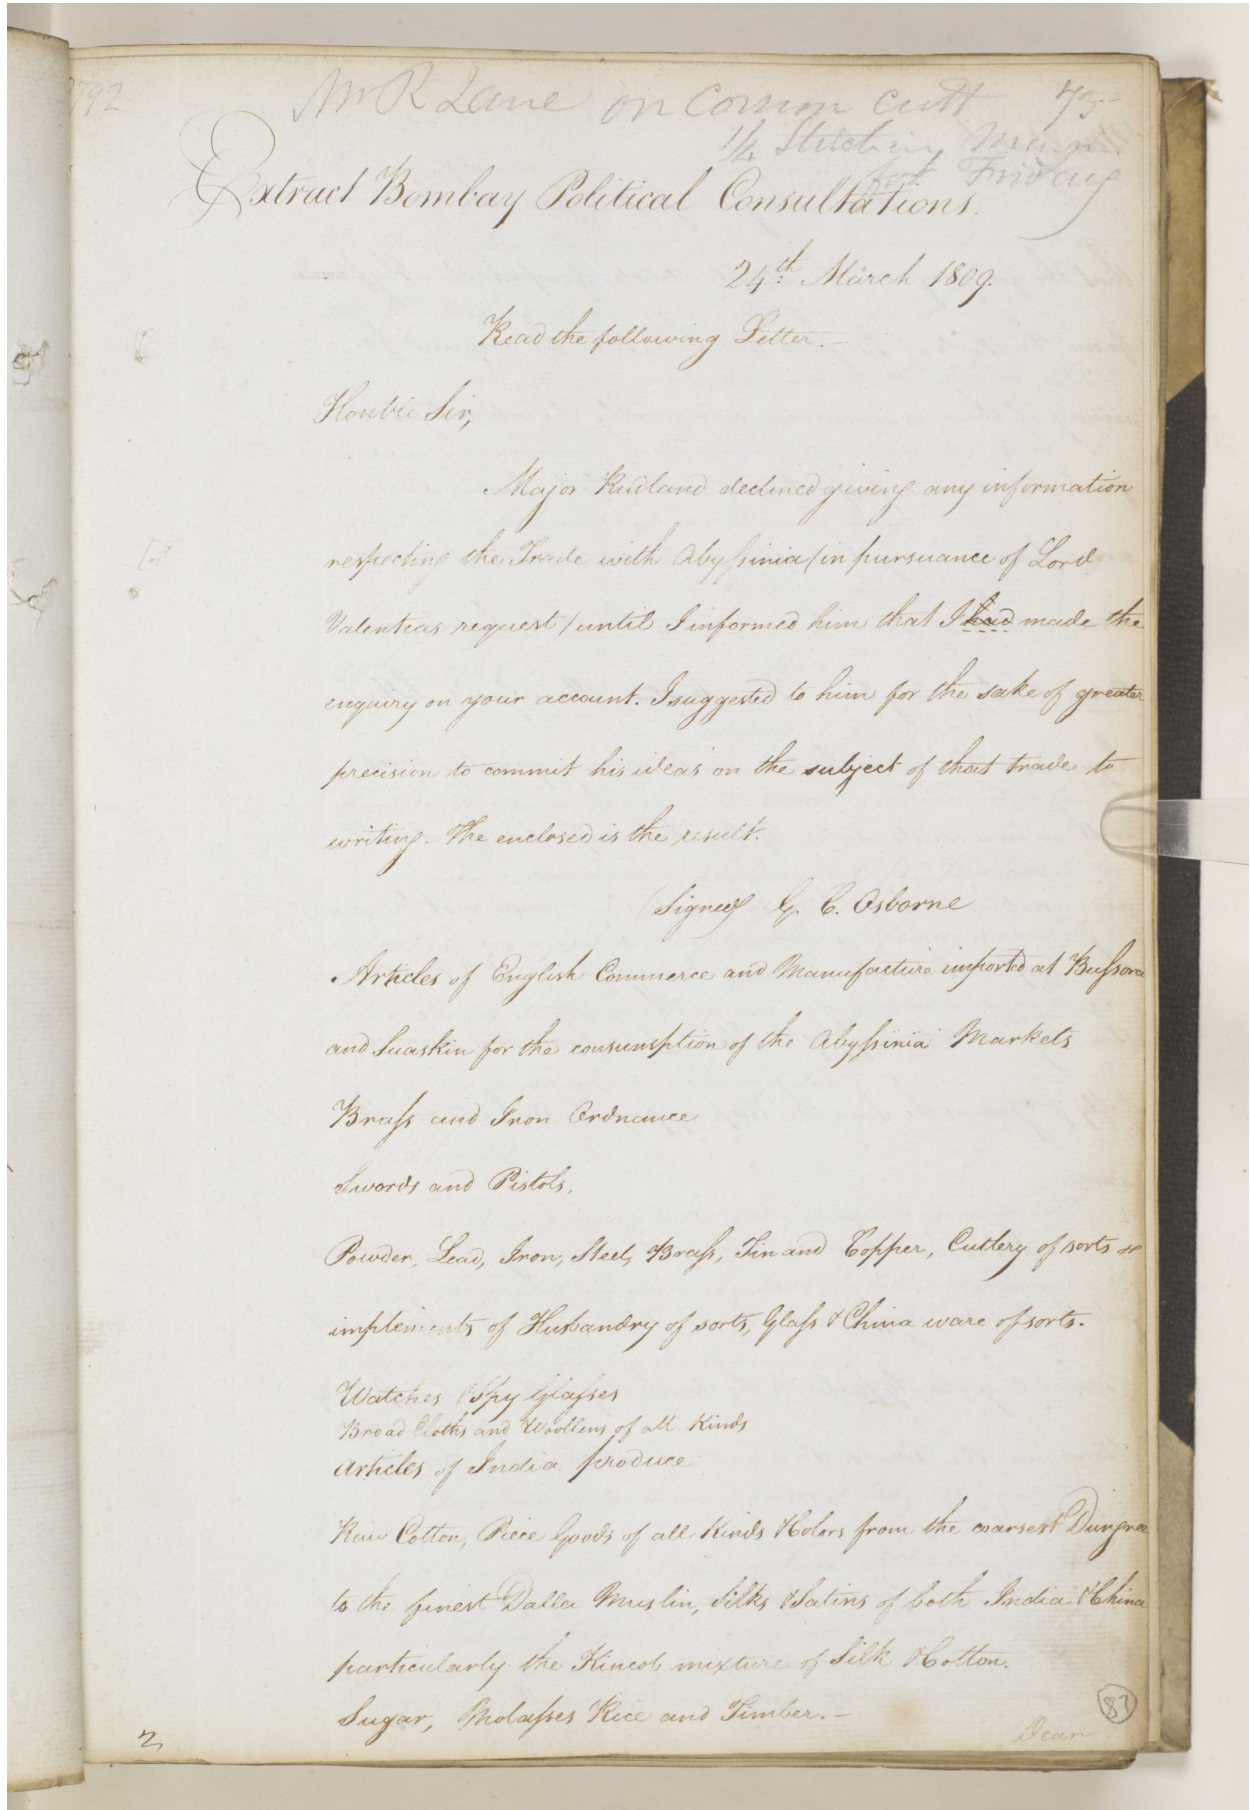 792
Mr R Lane on Comon cutt 75.-
1/4 Stitching
for Friday
Extract Bombay Political Consultations.
24th: March 1809.
Read the following Letter.-
Honble Sir,
Major Rudland declined giving any information
respecting the Trade with Abyssinia /in pursuance of Lord
Valentias request/ until I informed him that I had made the
enquiry on your account. I suggested to him for the sake of greater
precision to commit his ideas on the subject of that trade to
writing. The enclosed is the result.
(Signed) G. C. Osborne
Articles of English Commerce and Manufacture imported at Bussora
and Suaskin for the consumption of the Abyssinia Markets
Brass and Iron Ordnance
Swords and Pistols.
Powder, Lead, Iron, Steel, Brass, Tin and Copper, Cutlery of sorts &
implements of Husbandry of sorts, Glass & China ware of sorts.
Watches & Spy Glasses
Broad Cloths and Woollens of all Kinds
Articles of India produce
Raw Cotton, Piece Goods of all Kinds & Colors from the coarsest
to the finest Dalla Muslin, Silks & Satins of both India & China
particularly the Kincob mixture of Silk & Cotton.
Sugar, Molasses Rice and Timber.-
83
2
Dean